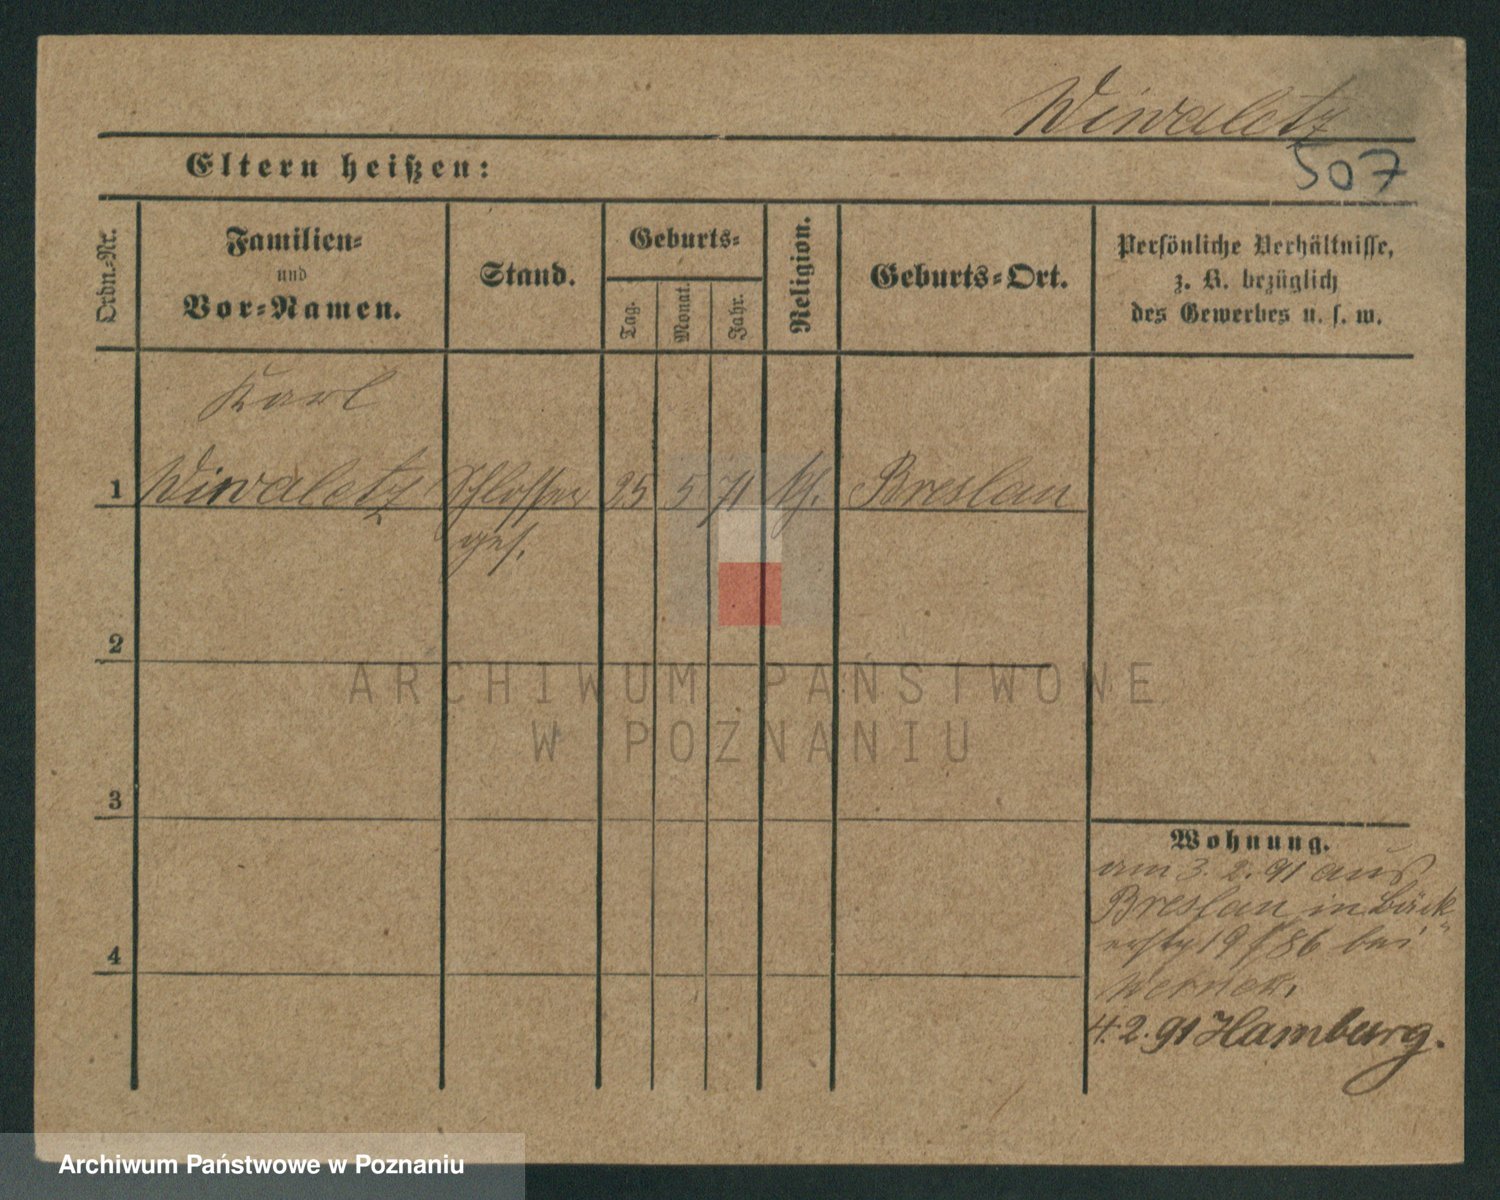 Wiwaletz
507
Eltern heißen:
Ordn.-Nr.
Familien-
und
Vor-Namen.
Stand.
Geburts-
Tag.
Monat.
Jahr.
Religion.
Geburts-Ort.
Persönliche Verhältnisse,
z. B. bezüglich
des Gewerbes u. s. w.
Karl
1 Wiwaletz Schlosser 25 5 71 Breslau
ges.
2
ARCHIWUM PAŃSTWOWE
W POZNANIU
3
Wohnung.
am 3. 2. 91 aus
Breslau in Bäck-
erstr 19 / 86 bei
Wernek.
4
4. 2. 91 Hamburg.
Archiwum Państwowe w Poznaniu